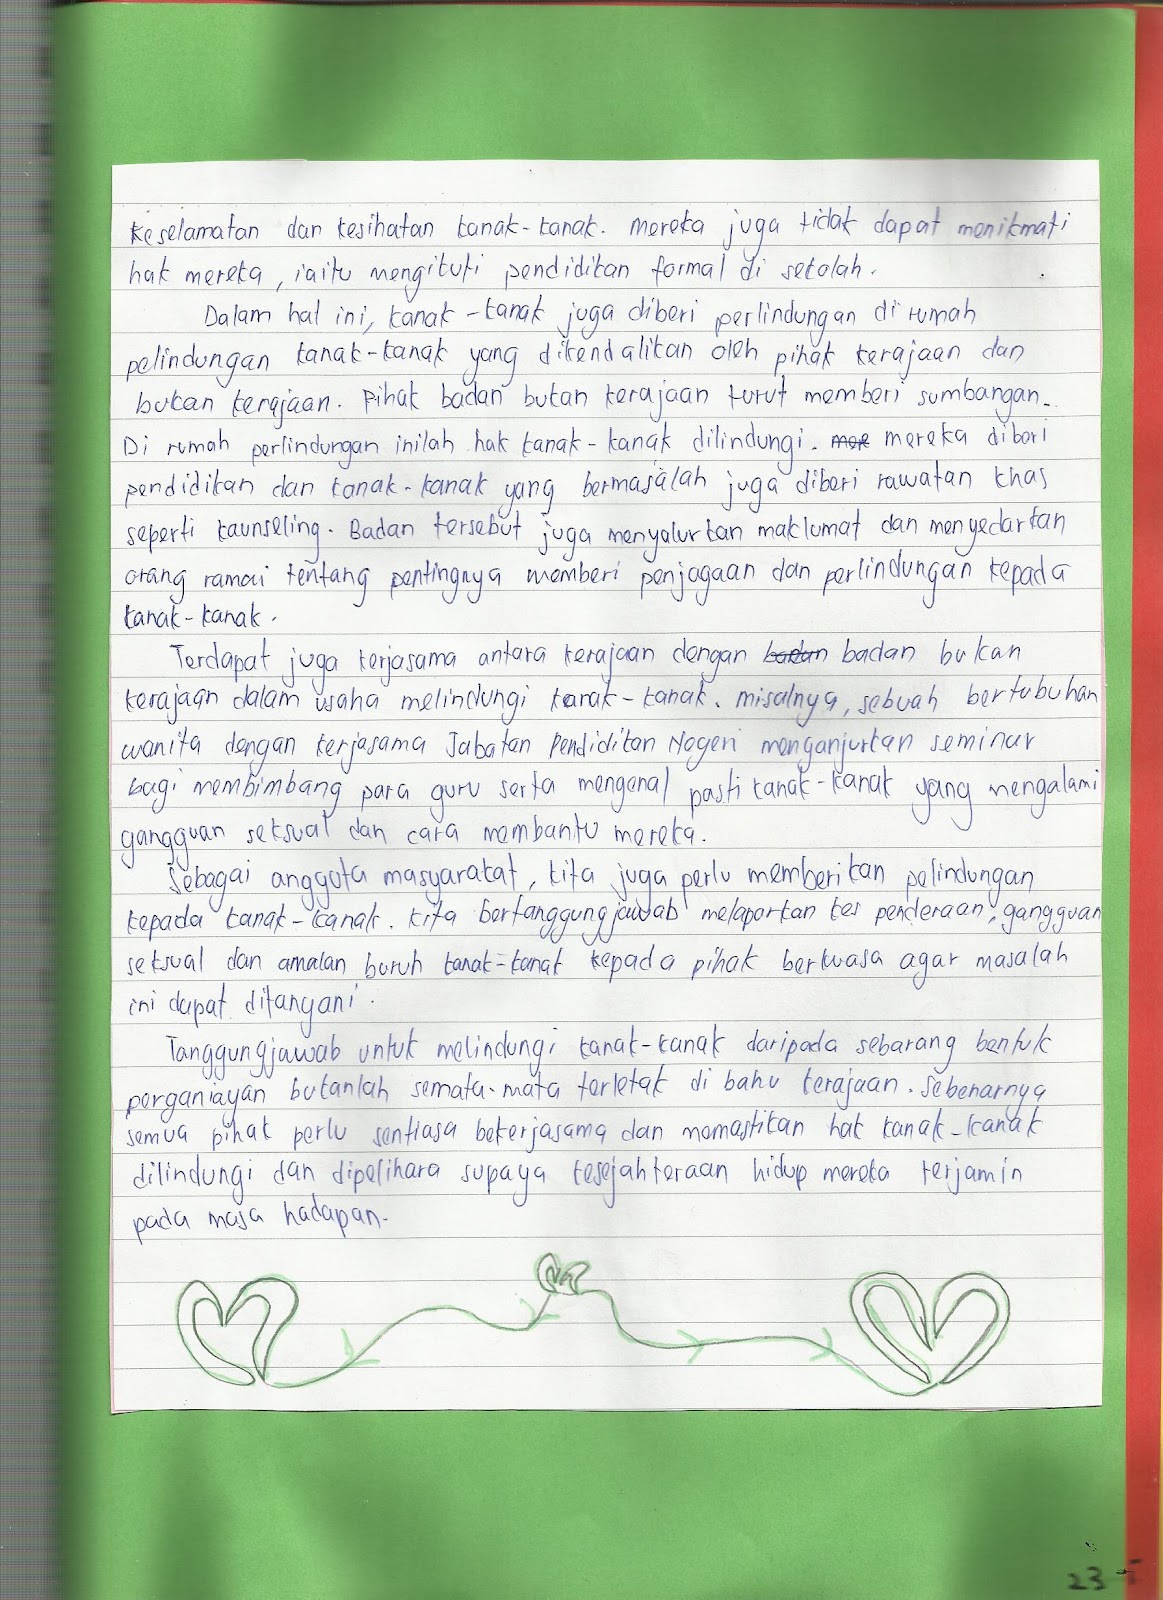 keselamatan dan kesihatan kanak-kanak. mereka juga tidak dapat menikmati
hak mereka, iaitu mengikuti pendidikan formal di sekolah.
Dalam hal ini, kanak-kanak juga diberi perlindungan di rumah
pelindungan kanak-kanak yang dikendalikan oleh pihak kerajaan dan
bukan kerajaan. Pihak badan bukan kerajaan turut memberi sumbangan.
Di rumah perlindungan inilah hak kanak-kanak dilindungi. mereka diberi
pendidikan dan kanak-kanak yang bermasalah juga diberi rawatan khas
seperti kaunseling. Badan tersebut juga menyalurkan maklumat dan menyedarkan
orang ramai tentang pentingnya memberi penjagaan dan perlindungan kepada
kanak-kanak.
Terdapat juga kerjasama antara kerajaan dengan badan badan bukan
kerajaan dalam usaha melindungi kanak-kanak. misalnya, sebuah bertubuhan
wanita dengan kerjasama Jabatan Pendidikan Negeri menganjurkan seminar
bagi membimbang para guru serta mengenal pasti kanak-kanak yang mengalami
gangguan seksual dan cara membantu mereka.
Sebagai anggota masyarakat, kita juga perlu memberikan pelindungan
kepada kanak-kanak. kita bertanggungjawab melaporkan kes penderaan, gangguan
seksual dan amalan buruh kanak-kanak kepada pihak berkuasa agar masalah
ini dapat ditangani.
Tanggungjawab untuk melindungi kanak-kanak daripada sebarang bentuk
penganiayan bukanlah semata-mata terletak di bahu kerajaan. Sebenarnya
semua pihak perlu sentiasa bekerjasama dan memastikan hak kanak-kanak
dilindungi dan dipelihara supaya kesejahteraan hidup mereka terjamin
pada masa hadapan.
23